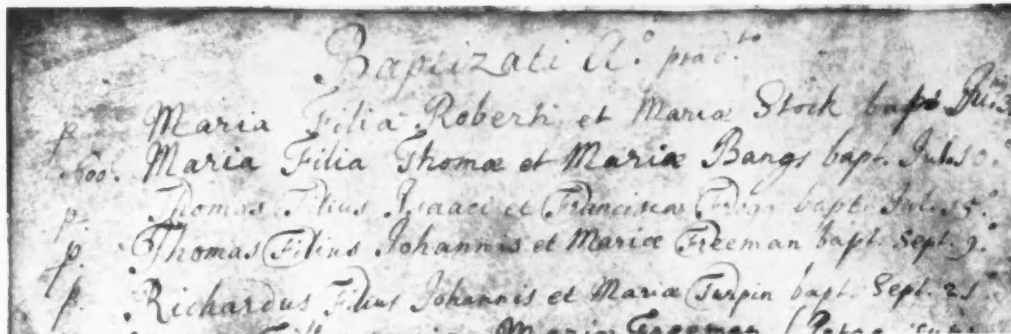 Baptizati A.o præd.to
p. Maria Filia Roberti et Mariæ Stock bapt.
Maria Filia Thomæ et Mariæ Bangs bapt. Jul. 10.o
p. Thomas Filius Isaaci et Franciscæ bapt. Jul. 15.o
p. Thomas Filius Johannis et Mariæ Freeman bapt. Sept. 9.o
p. Richardus Filius Johannis et Mariæ Turpin bapt. Sept. 21
Maria Freeman